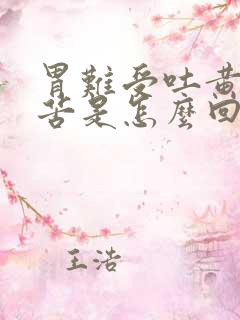 胃難受吐黃
苦是怎麼回
王浩